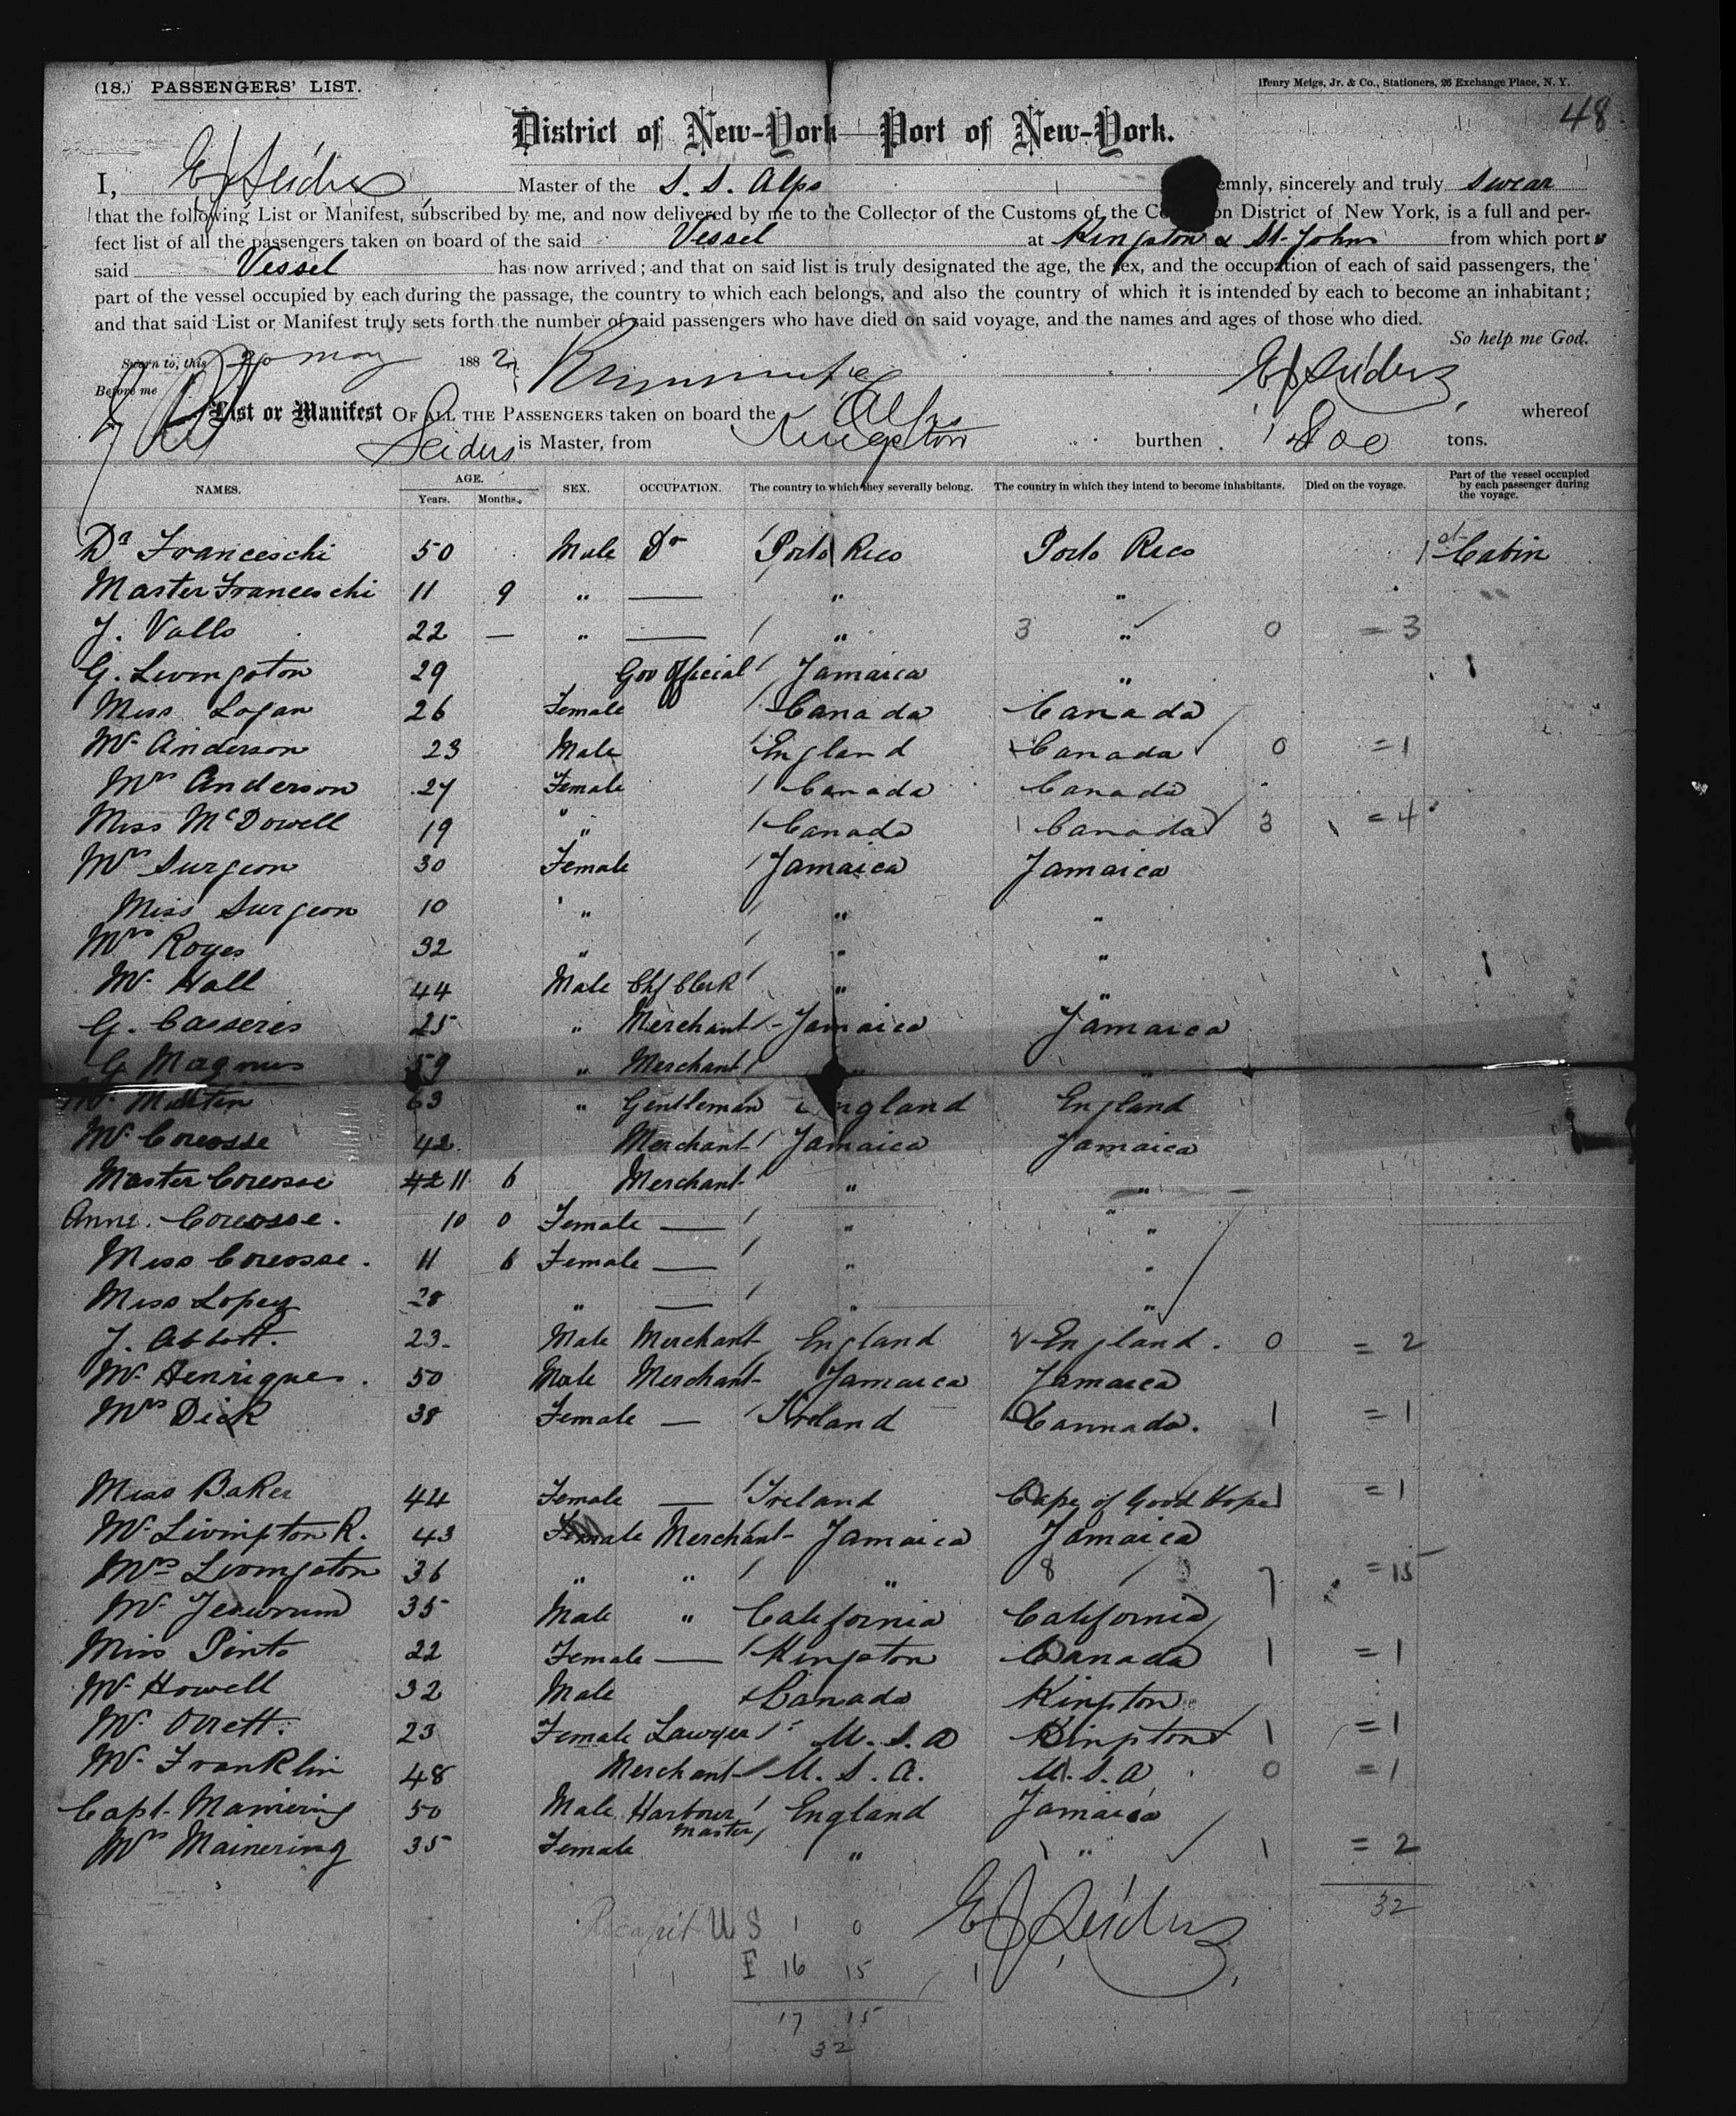 (18.) PASSENGERS' LIST.
Henry Meigs, Jr. & Co., Stationers, 26 Exchange Place, N. Y.
48
District of New-York—Port of New-York.
I, E J Seiders Master of the S. S. Alps emnly, sincerely and truly swear
that the following List or Manifest, subscribed by me, and now delivered by me to the Collector of the Customs of the Co on District of New York, is a full and per-
fect list of all the passengers taken on board of the said Vessel at Kingston & St. Johns from which port
said Vessel has now arrived; and that on said list is truly designated the age, the sex, and the occupation of each of said passengers, the
part of the vessel occupied by each during the passage, the country to which each belongs, and also the country of which it is intended by each to become an inhabitant;
and that said List or Manifest truly sets forth the number of said passengers who have died on said voyage, and the names and ages of those who died.
So help me God.
Sworn to, this 20 may 1882 E J Seiders
Before me
List or Manifest OF ALL THE PASSENGERS taken on board the Alps whereof
Seiders is Master, from Kingston burthen tons.
NAMES. AGE. Years. Months. SEX. OCCUPATION. The country to which they severally belong. The country in which they intend to become inhabitants. Died on the voyage. Part of the vessel occupied by each passenger during the voyage.
Dr Franceschi 50 Male Dr Porto Rico Porto Rico 1st Cabin
Master Franceschi 11 9 " — " " "
J. Valls 22 — " — " 3 " 0 = 3
G. Livingston 29 Gov Official Jamaica "
Miss Logan 26 Female Canada Canada
Mr Anderson 23 Male England Canada 0 = 1
Mrs Anderson 27 Female Canada Canada
Miss McDowell 19 " Canada Canada 3 = 4
Mrs Surgeon 30 Female Jamaica Jamaica
Miss Surgeon 10 " " "
Mrs Royes 32 " " "
Mr Hall 44 Male Chf Clerk " "
G. Casseres 25 " Merchant Jamaica Jamaica
G Magnus 59 " Merchant " "
Mr Martin 63 " Gentleman England England
Mr Coreosse 42 Merchant Jamaica Jamaica
Master Coreosse 42 11 6 Merchant " "
Anne. Coreosse. 10 0 Female — " "
Miss Coreosse. 11 6 Female — " "
Miss Lopez 28 " — " "
J. Abbott. 23 Male Merchant England England. 0 = 2
Mr Henriques. 50 Male Merchant Jamaica Jamaica
Mrs Dick 38 Female — Ireland Cannada. 1 = 1
Miss Baker 44 Female — Ireland Cape of Good Hope 1 = 1
Mr Livingston R. 43 Female Merchant Jamaica Jamaica
Mrs Livingston 36 " " " 8 7 = 15
Mr 35 Male " California California
Miss Pinto 22 Female — Kingston Canada 1 = 1
Mr Howell 32 Male Canada Kingston
Mr Orrett. 23 Female Lawyer U. S. A Kingston 1 = 1
Mr Franklin 48 Merchant U. S. A. U. S. A 0 = 1
Capt. Mainering 50 Male Harbour Master England Jamaica
Mrs Mainering 35 Female " " 1 = 2
32
U S 1 0 E J Seiders
F 16 15
17 15
32